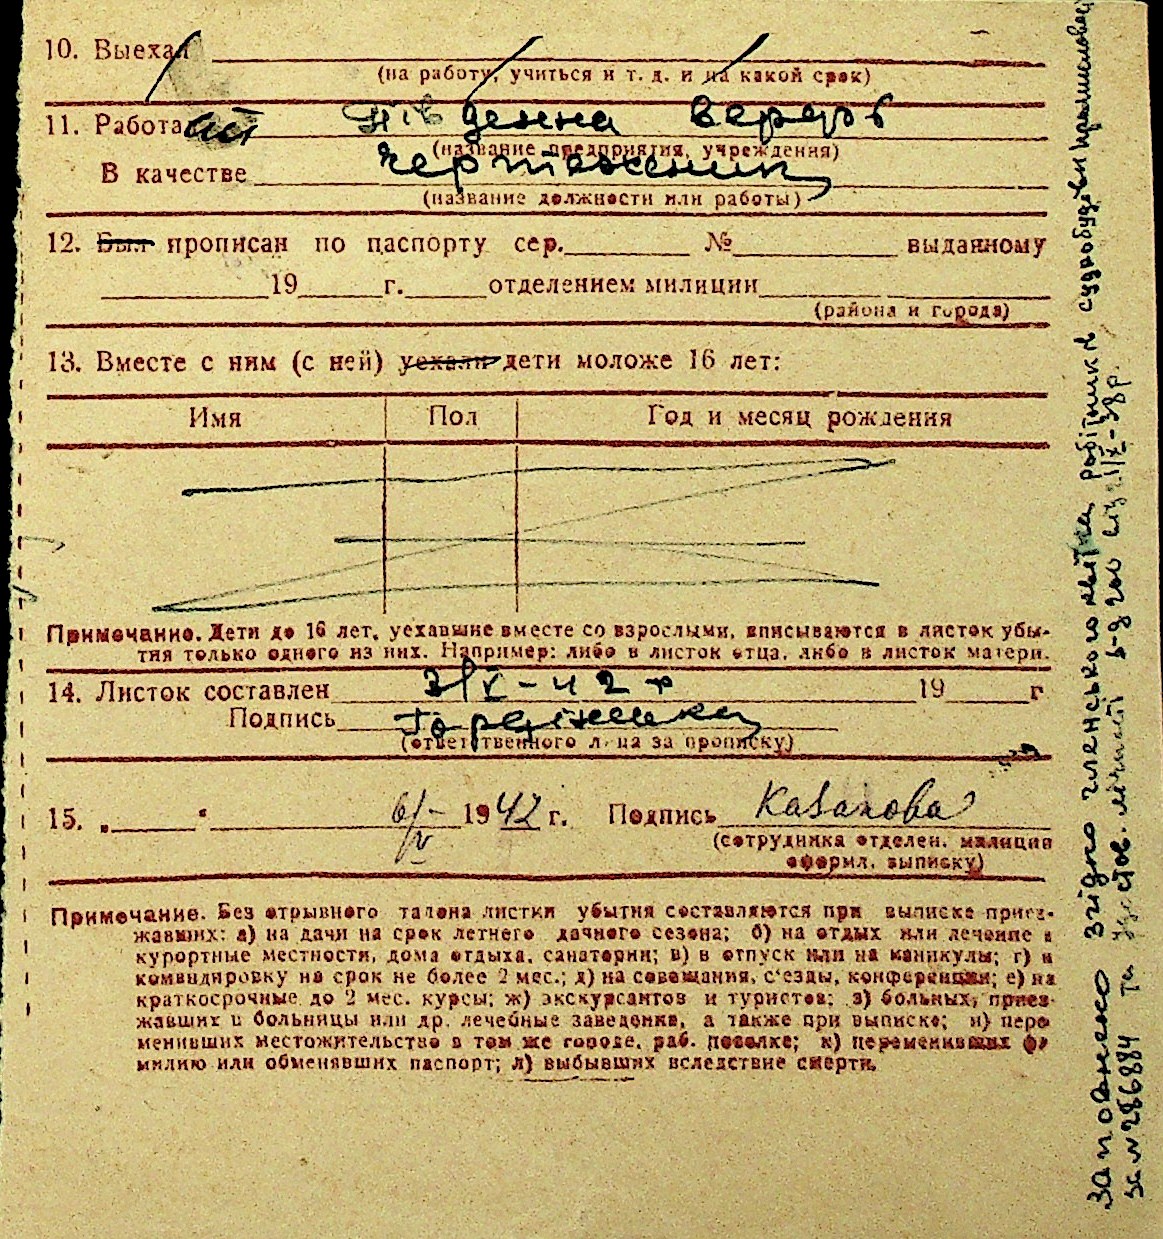 10. Выехал
(на работу, учиться и т. д. и на какой срок)
11. Работает Південна верфь
(название предприятия, учреждения)
В качестве чертежник
(название должности или работы)
12. Был прописан по паспорту сер. № выданному
19 г. отделением милиции
(района и города)
13. Вместе с ним (с ней) уехали дети моложе 16 лет:
Имя Пол Год и месяц рождения
Примечание. Дети до 16 лет, уехавшие вместе со взрослыми, вписываются в листок убы-
тия только одного из них. Например: либо в листок отца, либо в листок матери.
14. Листок составлен 3/V-42 р 19 г
Подпись
(ответственного лица за прописку)
15. „ “ 6/V- 1942 г. Подпись Казакова
(сотрудника отделен. милиции
оформл. выписку)
Примечание. Без отрывного талона листки убытия составляются при выписке приез-
жавших: а) на дачи на срок летнего дачного сезона; б) на отдых или лечение в
курортные местности, дома отдыха, санатории; в) в отпуск или на каникулы; г) в
командировку на срок не более 2 мес.; д) на совещания, с'езды, конференции; е) на
краткосрочные до 2 мес. курсы; ж) экскурсантов и туристов; з) больных, приез-
жавших в больницы или др. лечебные заведения, а также при выписке; и) пере
менивших местожительство в том же городе, раб. поселке; к) переменивших фа
милию или обменявших паспорт; л) выбывших вследствие смерти.
Заповнено згідно членського квитка робітників суднобудівн промисловості
за №286884 та 6-д 200 від 1/X-38р.